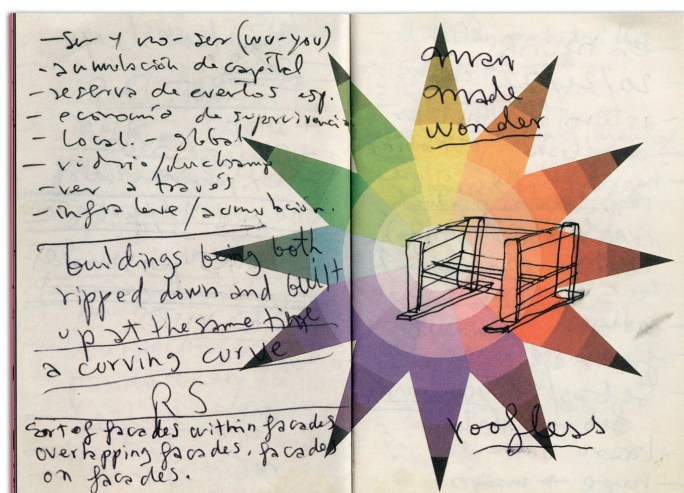 - Ser y no-ser (wu-you)
- acumulación de capital
- reserva de eventos esp.
- economía de supervivencia
- local. - global
- vidrio/duchamp
- ver a través
- infra leve/acumulación.
buildings being both
ripped down and built
up at the same time
a curving curve
RS
sort of facades within facades
overlapping facades, facades
on facades.
man
made
wonder
roofless